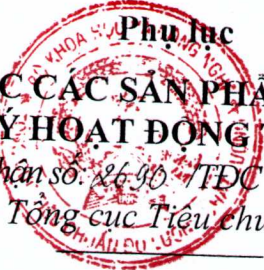 Phụ lục
C CÁC SẢN PHẨ
Ý HOẠT ĐỘNG
hận số: 2690 /TĐC
Tổng cục Tiêu chu